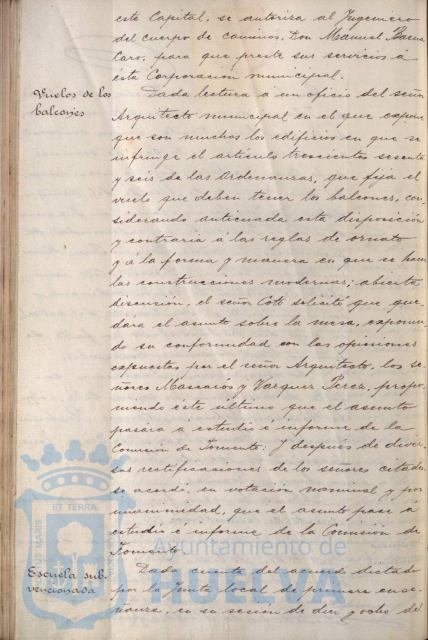 esta Capital, se autoriza al Ingeniero
del cuerpo de caminos, Don Manuel Baena
Caro, para que preste sus servicios á
ésta Corporación municipal.
Vuelos de los
balcones
Dada lectura á un oficio del señor
Arquitecto municipal en el que expone
que son muchos los edificios en que se
infringe el artículo trescientos sesenta
y seis de las Ordenanzas, que fija el
vuelo que deben tener los balcones, con-
siderando anticuada esta disposición
y contraria á las reglas de ornato
y á la forma y manera en que se hacen
las construcciones modernas; abierta
discusión, el señor Coto solicitó que que-
dara el asunto sobre la mesa, exponien-
do su conformidad con las opiniones
expuestas por el señor Arquitecto, los se-
ñores Mascarós y Vázquez Perez, propo-
niendo éste último que el asunto
pasára á estudio é informe de la
Comisión de Fomento. Y después de diver-
sas rectificaciones de los señores citados
se acordó, en votación nominal y por
unanimidad, que el asunto pase á
estudio é informe de la Comisión de
Fomento.
Escuela sub-
vencionada
Dada cuenta del acuerdo dictado
por la Junta local de primera ense-
ñanza, en su sesión de diez y ocho del
PORTUS MARIS ET TERRAE
Ayuntamiento de
HUELVA